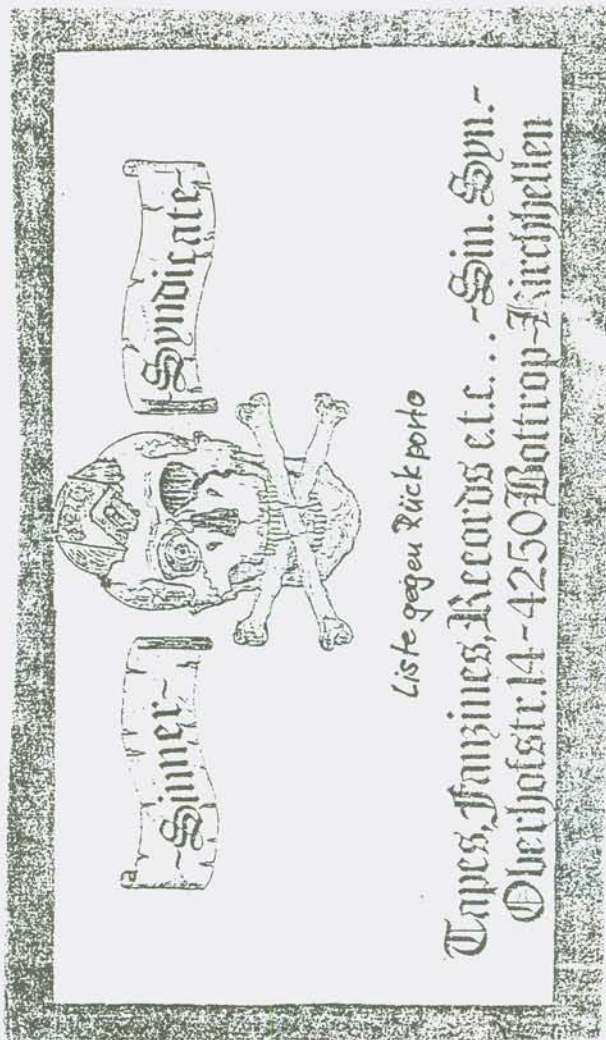 Sinner~
Syndicate~
Liste gegen Rückporto
Tapes, Fanzines, Records e.t.c... -Sin. Syn.-
Oberhofstr. 14 - 4250 Bottrop-Kirchhellen